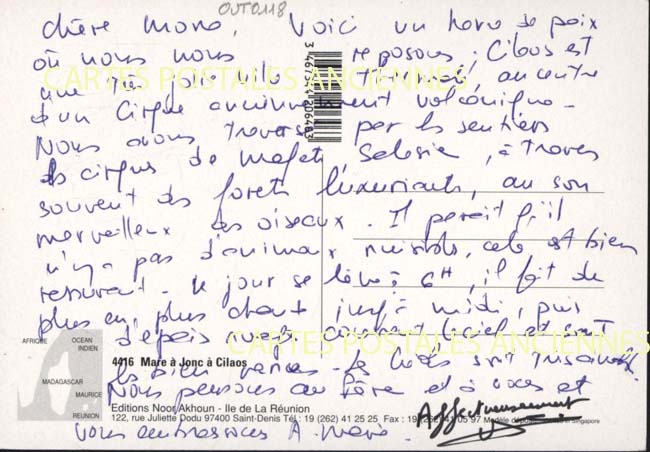 OUT0118
Chère Mono, Voici un havre de paix
où nous nous reposons. Cilaos est
une très jolie ville, au centre
d'un Cirque anciennement volcanique.
Nous avons traversé par les sentiers
les cirques de Mafate, Salazie, à travers
souvent des forêts luxuriantes, au son
merveilleux des oiseaux. Il parait qu'il
n'y a pas d'animaux nuisibles, cela est bien
rassurant. Le jour se lève à 6H, il fait de
plus en plus chaud jusqu'à midi, puis
d'épais nuages couvrent le ciel et sont
les bien venus. Les sont
Nous pensons au Père et à vous et
vous embrassons A. Marie
Affectueusement
3 467544 206483
CARTES POSTALES ANCIENNES
CARTES POSTALES ANCIENNES
AFRIQUE
OCEAN
INDIEN
MADAGASCAR
MAURICE
REUNION
4416 Mare à Jonc à Cilaos
Editions Noor Akhoun - Ile de La Réunion
122, rue Juliette Dodu 97400 Saint-Denis Tél : 19 (262) 41 25 25 Fax : 19 (262) 41 05 97 Modèle Singapore